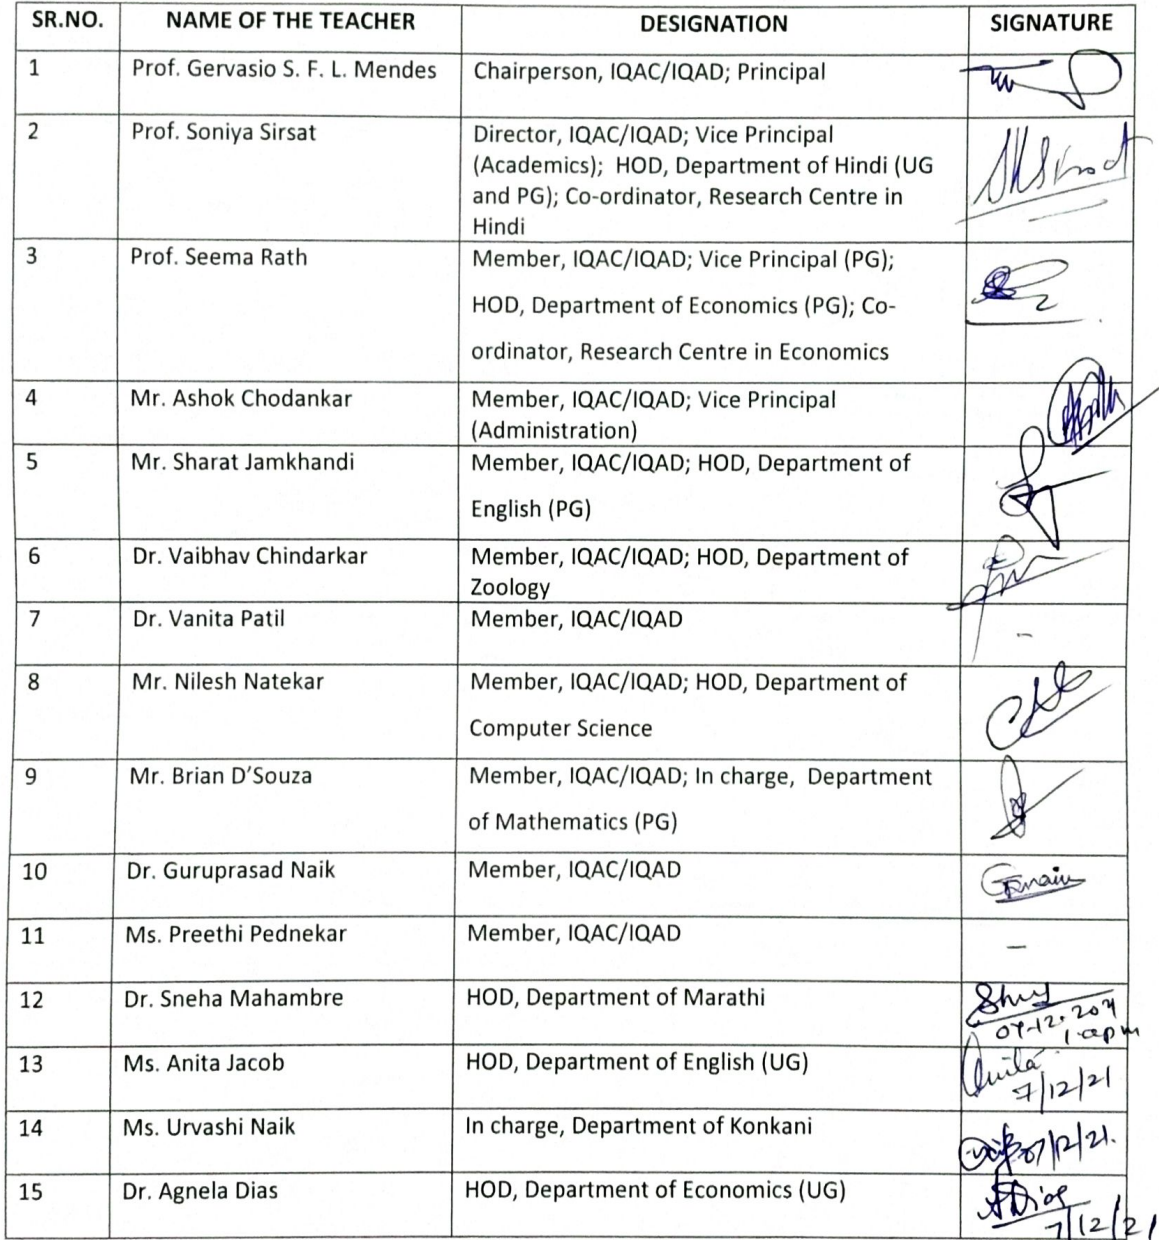 SR.NO. NAME OF THE TEACHER DESIGNATION SIGNATURE
1 Prof. Gervasio S. F. L. Mendes Chairperson, IQAC/IQAD; Principal
2 Prof. Soniya Sirsat Director, IQAC/IQAD; Vice Principal
(Academics); HOD, Department of Hindi (UG
and PG); Co-ordinator, Research Centre in
Hindi
3 Prof. Seema Rath Member, IQAC/IQAD; Vice Principal (PG);
HOD, Department of Economics (PG); Co-
ordinator, Research Centre in Economics
4 Mr. Ashok Chodankar Member, IQAC/IQAD; Vice Principal
(Administration)
5 Mr. Sharat Jamkhandi Member, IQAC/IQAD; HOD, Department of
English (PG)
6 Dr. Vaibhav Chindarkar Member, IQAC/IQAD; HOD, Department of
Zoology
7 Dr. Vanita Patil Member, IQAC/IQAD -
8 Mr. Nilesh Natekar Member, IQAC/IQAD; HOD, Department of
Computer Science
9 Mr. Brian D'Souza Member, IQAC/IQAD; In charge, Department
of Mathematics (PG)
10 Dr. Guruprasad Naik Member, IQAC/IQAD
11 Ms. Preethi Pednekar Member, IQAC/IQAD -
12 Dr. Sneha Mahambre HOD, Department of Marathi
13 Ms. Anita Jacob HOD, Department of English (UG) Anita
7/12/21
14 Ms. Urvashi Naik In charge, Department of Konkani 07/12/21.
15 Dr. Agnela Dias HOD, Department of Economics (UG) ADias
7/12/21